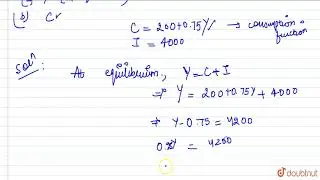 (b) Cr
C = 200+0.75Y → consumption function
I = 4000
Solⁿ : At equilibrium, Y = C + I
⇒ Y = 200+0.75Y + 4000
⇒ Y-0.75 = 4200
= 4200
doubtnut